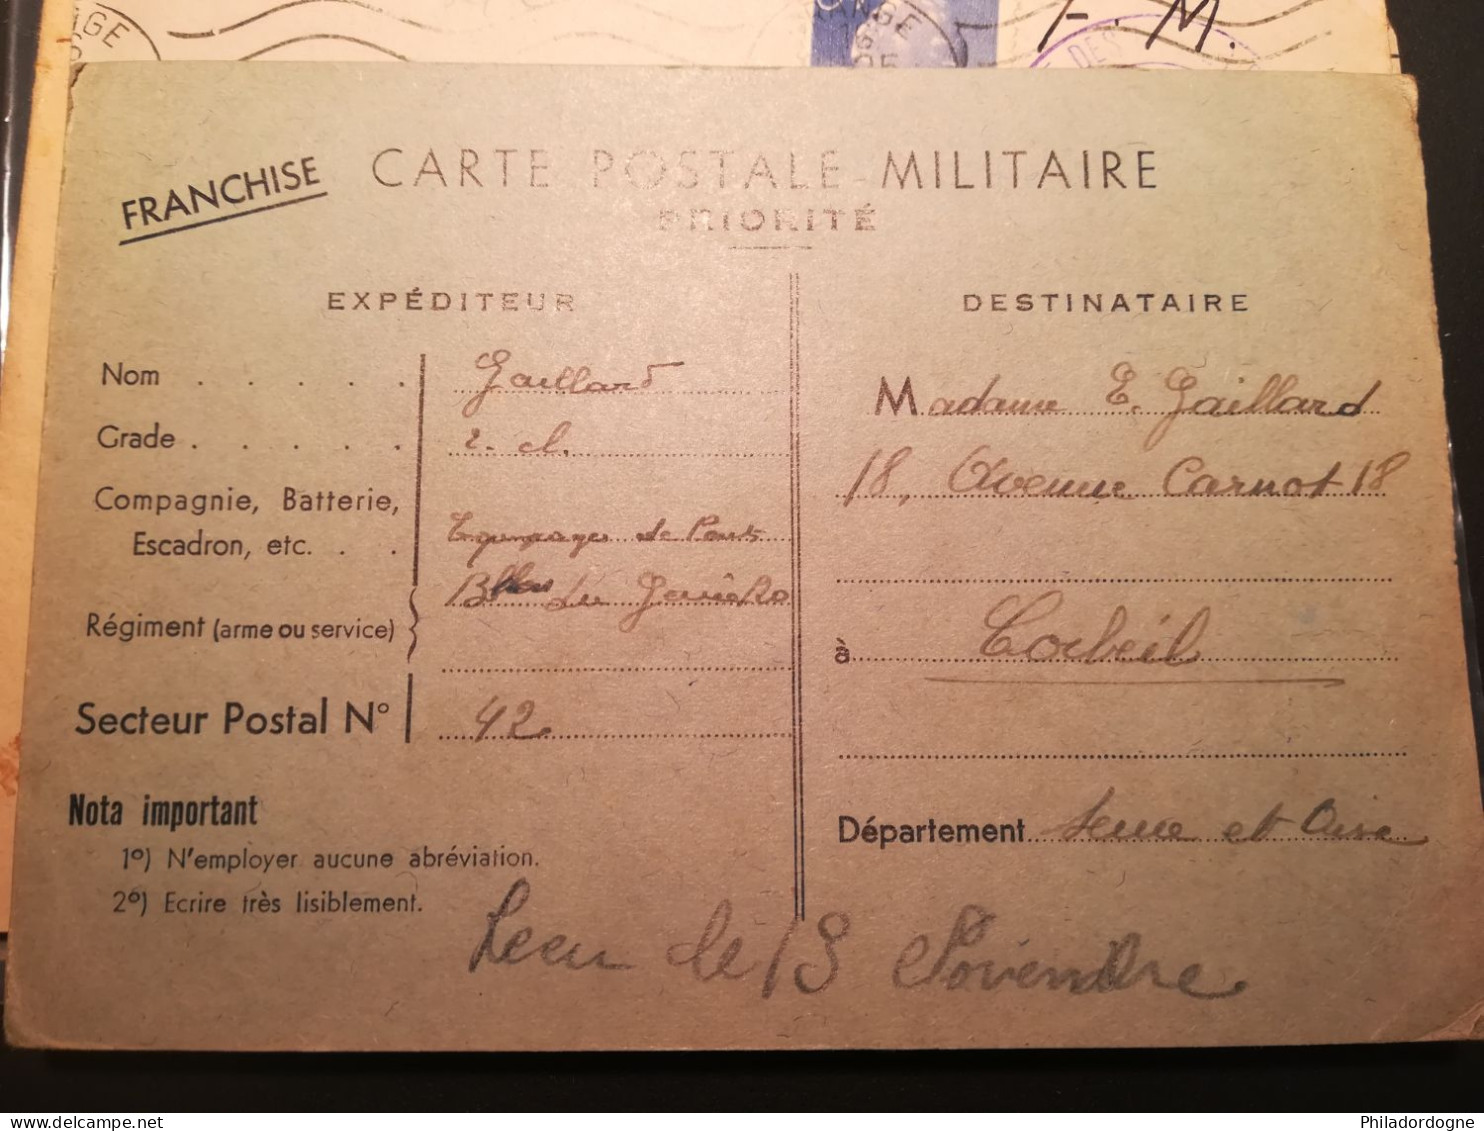 ANGE
F. M.
DES
FRANCHISE
CARTE POSTALE MILITAIRE
PRIORITÉ
EXPÉDITEUR
Nom . . . . . Gaillard
Grade . . . . . 2. cl.
Compagnie, Batterie,
Escadron, etc. . . Equipages de Ponts
Régiment (arme ou service) Blon du Génie
Secteur Postal N° 42
Nota important
1°) N'employer aucune abréviation.
2°) Ecrire très lisiblement.
DESTINATAIRE
Madame E. Gaillard
18, Avenue Carnot 18
à Corbeil
Département Seine et Oise
Reçu le 13 Novembre
Philadordogne